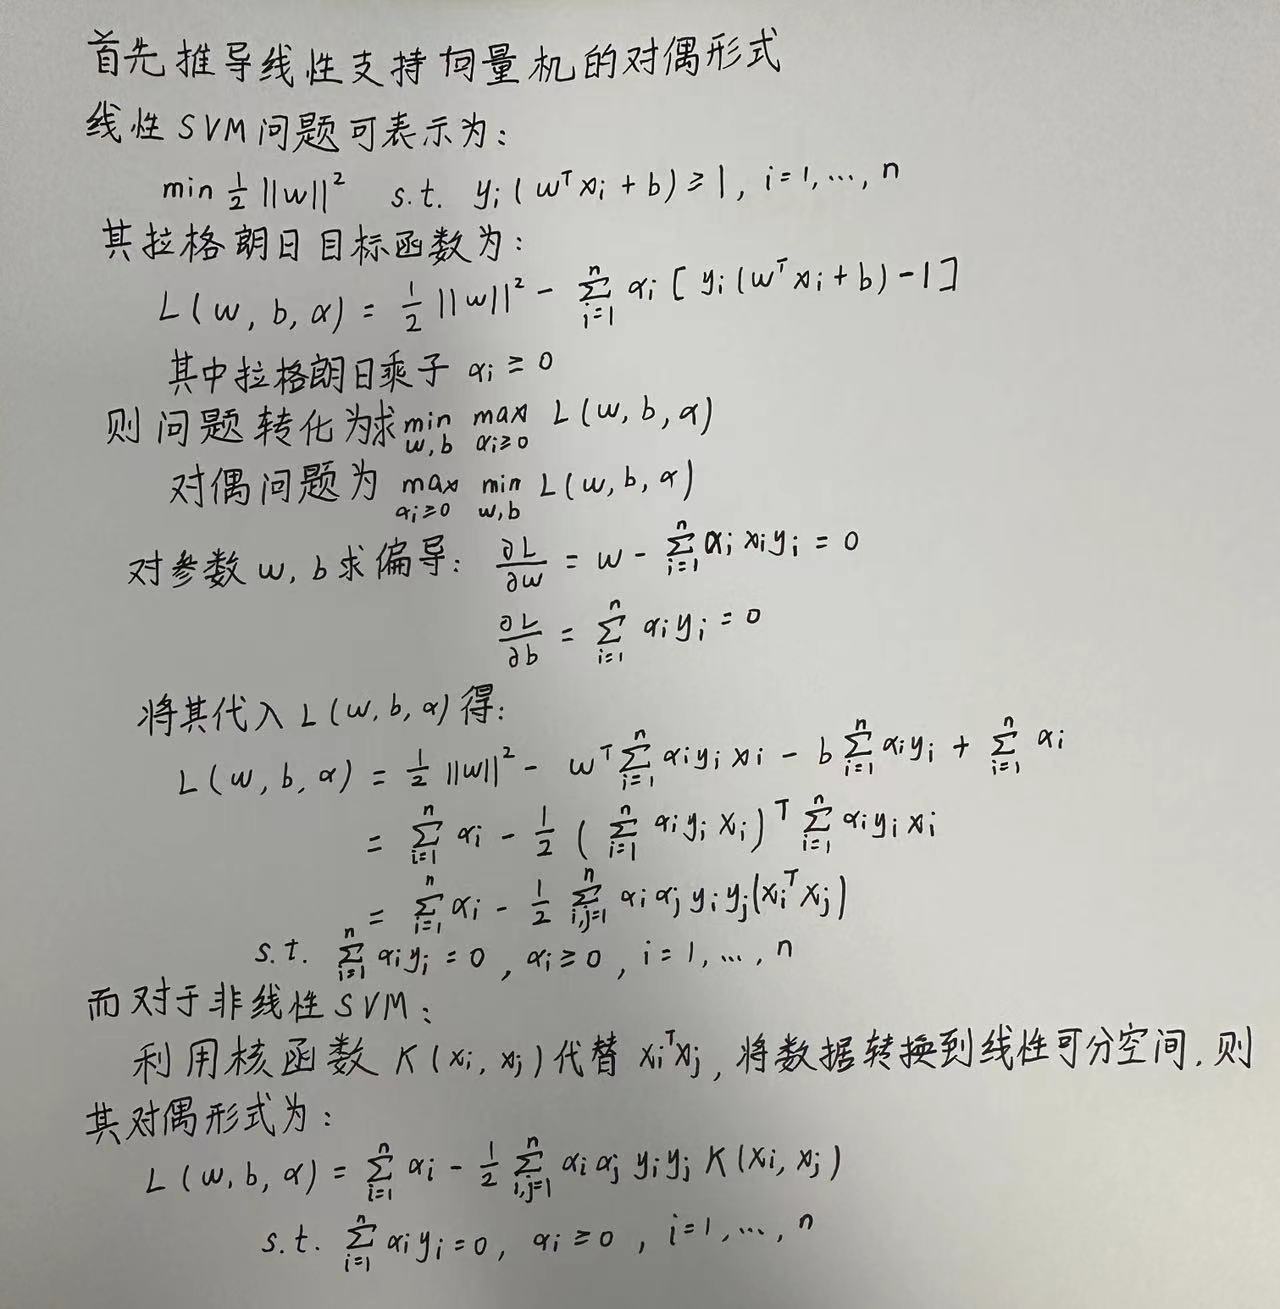 首先推导线性支持向量机的对偶形式
线性SVM问题可表示为:
min 1/2 ||w||² s.t. yᵢ(wᵀxᵢ + b) ≥ 1, i=1,…,n
其拉格朗日目标函数为:
L(w, b, α) = 1/2 ||w||² - ∑ᵢ₌₁ⁿ αᵢ [yᵢ(wᵀxᵢ + b) - 1]
其中拉格朗日乘子 αᵢ ≥ 0
则问题转化为求 min_{w,b} max_{αᵢ≥0} L(w, b, α)
对偶问题为 max_{αᵢ≥0} min_{w,b} L(w, b, α)
对参数w, b求偏导: ∂L/∂w = w - ∑ᵢ₌₁ⁿ αᵢxᵢyᵢ = 0
∂L/∂b = ∑ᵢ₌₁ⁿ αᵢyᵢ = 0
将其代入L(w, b, α)得:
L(w, b, α) = 1/2 ||w||² - wᵀ∑ᵢ₌₁ⁿ αᵢyᵢxᵢ - b∑ᵢ₌₁ⁿ αᵢyᵢ + ∑ᵢ₌₁ⁿ αᵢ
= ∑ᵢ₌₁ⁿ αᵢ - 1/2 (∑ᵢ₌₁ⁿ αᵢyᵢxᵢ)ᵀ ∑ᵢ₌₁ⁿ αᵢyᵢxᵢ
= ∑ᵢ₌₁ⁿ αᵢ - 1/2 ∑ᵢ,ⱼ₌₁ⁿ αᵢαⱼyᵢyⱼ(xᵢᵀxⱼ)
s.t. ∑ᵢ₌₁ⁿ αᵢyᵢ = 0, αᵢ ≥ 0, i=1,…,n
而对于非线性SVM:
利用核函数 K(xᵢ, xⱼ)代替 xᵢᵀxⱼ, 将数据转换到线性可分空间, 则
其对偶形式为:
L(w, b, α) = ∑ᵢ₌₁ⁿ αᵢ - 1/2 ∑ᵢ,ⱼ₌₁ⁿ αᵢαⱼyᵢyⱼK(xᵢ, xⱼ)
s.t. ∑ᵢ₌₁ⁿ αᵢyᵢ=0, αᵢ ≥ 0, i=1,…,n